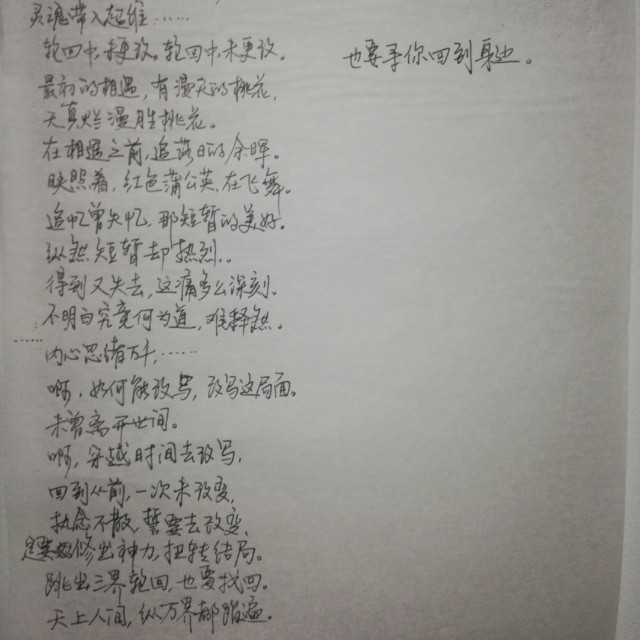 灵魂带入超维……
轮回中,未更改,轮回中,未更改。
最初的相遇,有漫天的桃花,
天真烂漫胜桃花。
在相遇之前,追落日的余晖。
映照着,红色蒲公英,在飞舞。
追忆曾失忆,那短暂的美好。
纵然短暂却热烈..
得到又失去,这痛多么深刻.
不明白究竟何为道,难释然。
……
内心思绪万千……
啊,如何能改写,改写这局面。
未曾离开世间。
啊,穿越时间去改写,
回到从前,一次未改变,
执念不散,誓要去改变
修出神力,扭转结局。
跳出三界轮回,也要找回。
天上人间,纵万界都踏遍。
也要寻你回到身边。